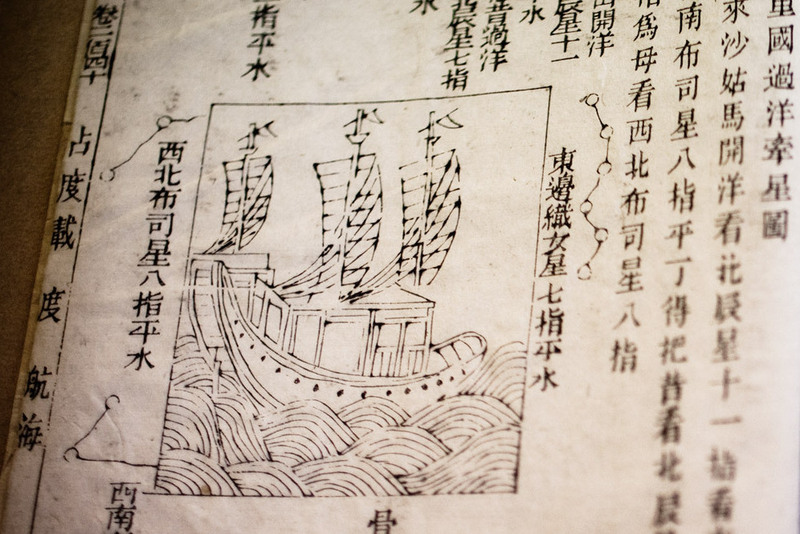 里國過洋牽星圖
來沙姑馬開洋看北辰星十一指看
南布司星八指平丁得把昔看北辰
為母看西北布司星八指
開洋
辰星十一
水
昔過洋
辰星七指
水
指平水
東邊織女星七指平水
西北布司星八指平水
骨
西南
卷二百四十
占度載
度
航海